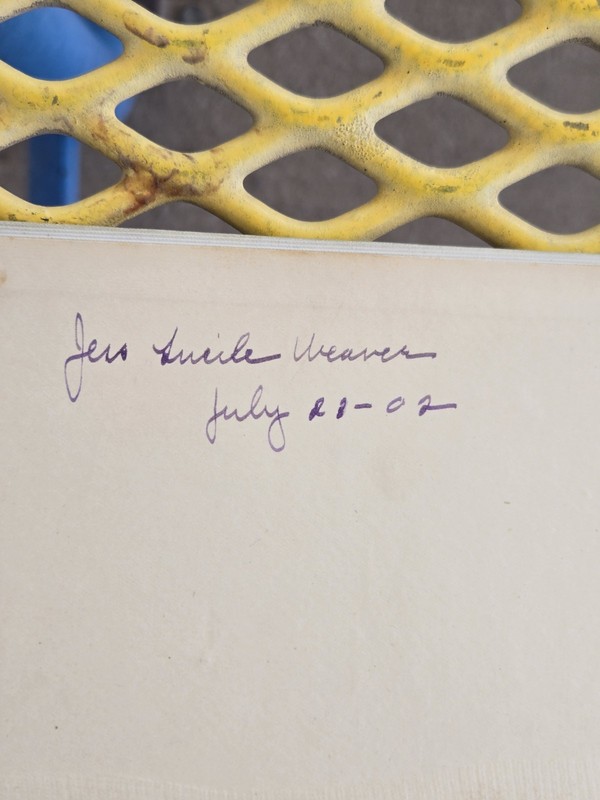 Jess Lucile Weaver
July 21-02